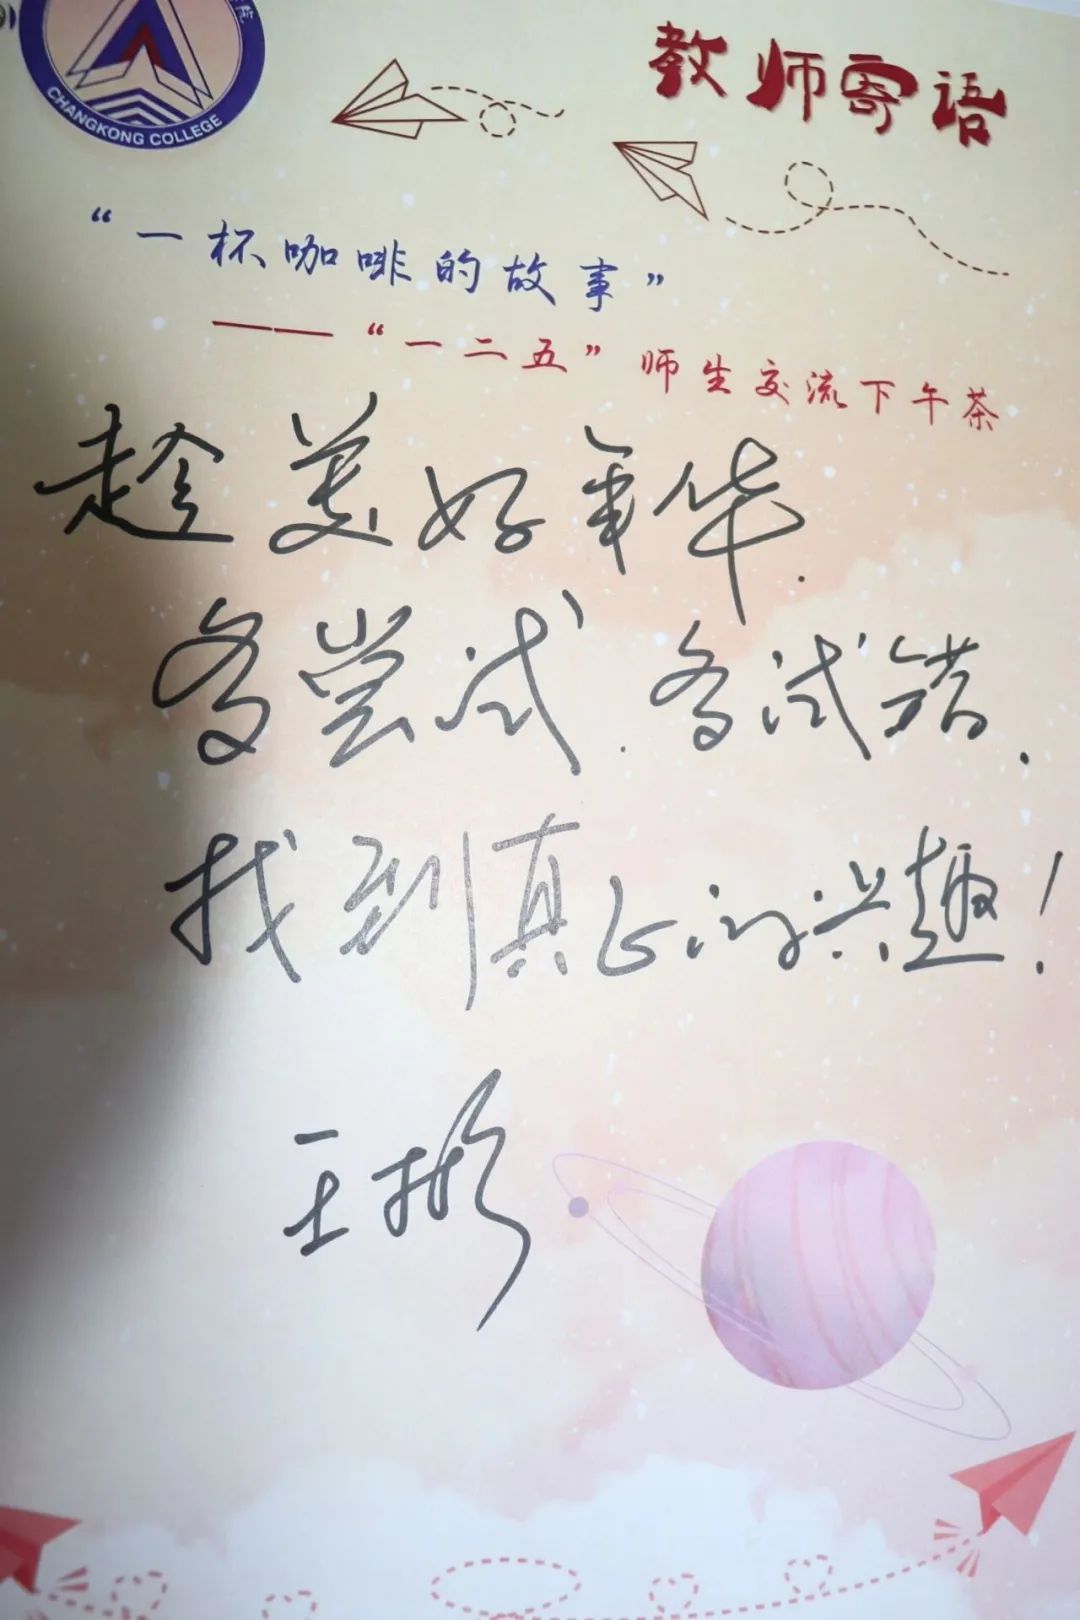 CHANGKONG COLLEGE
教师寄语
“一杯咖啡的故事”
——“一二五”师生交流下午茶
趁美好年华.
多尝试.多试错.
找到真正的兴趣!
王彬